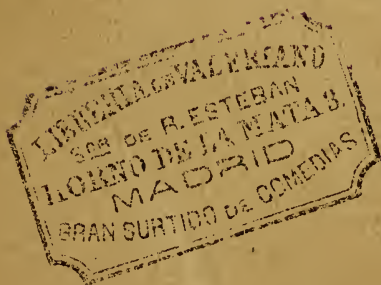 LIBRERIA DE VALERIANO
SOB DE R. ESTEBAN
HORNO DE LA MATA 3.
MADRID
GRAN SURTIDO DE COMEDIAS